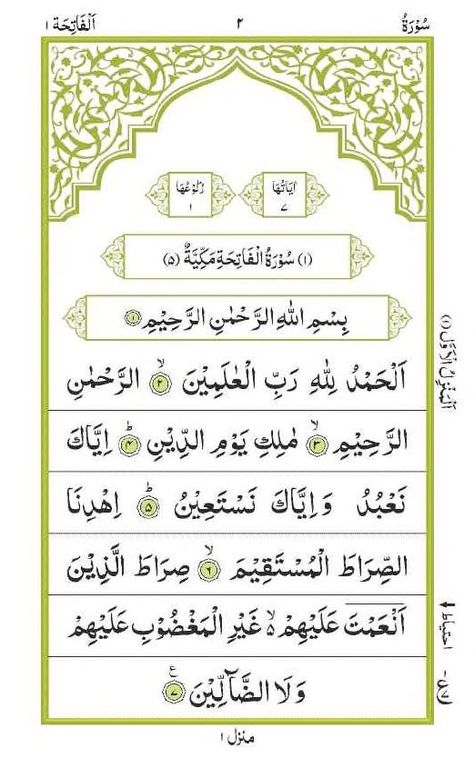 سُوْرَةُ ٢ اَلْفَاتِحَة ١
اٰيَاتُهَا ٧ رُكُوْعُهَا ١
(١) سُوْرَةُ الْفَاتِحَةِ مَكِّيَّةٌ (٥)
بِسْمِ اللّٰهِ الرَّحْمٰنِ الرَّحِيْمِ ١
اَلْحَمْدُ لِلّٰهِ رَبِّ الْعٰلَمِيْنَ ۙ ٢ الرَّحْمٰنِ
الرَّحِيْمِ ۙ ٣ مٰلِكِ يَوْمِ الدِّيْنِ ؕ ٤ اِيَّاكَ
نَعْبُدُ وَاِيَّاكَ نَسْتَعِيْنُ ؕ ٥ اِهْدِنَا
الصِّرَاطَ الْمُسْتَقِيْمَ ۙ ٦ صِرَاطَ الَّذِيْنَ
اَنْعَمْتَ عَلَيْهِمْ ۙ۬ غَيْرِ الْمَغْضُوْبِ عَلَيْهِمْ
وَلَا الضَّآلِّيْنَ ٧ ع
اَلْمَنْزِلُ الْاَوَّلُ (١)
احتياط
منزل ١